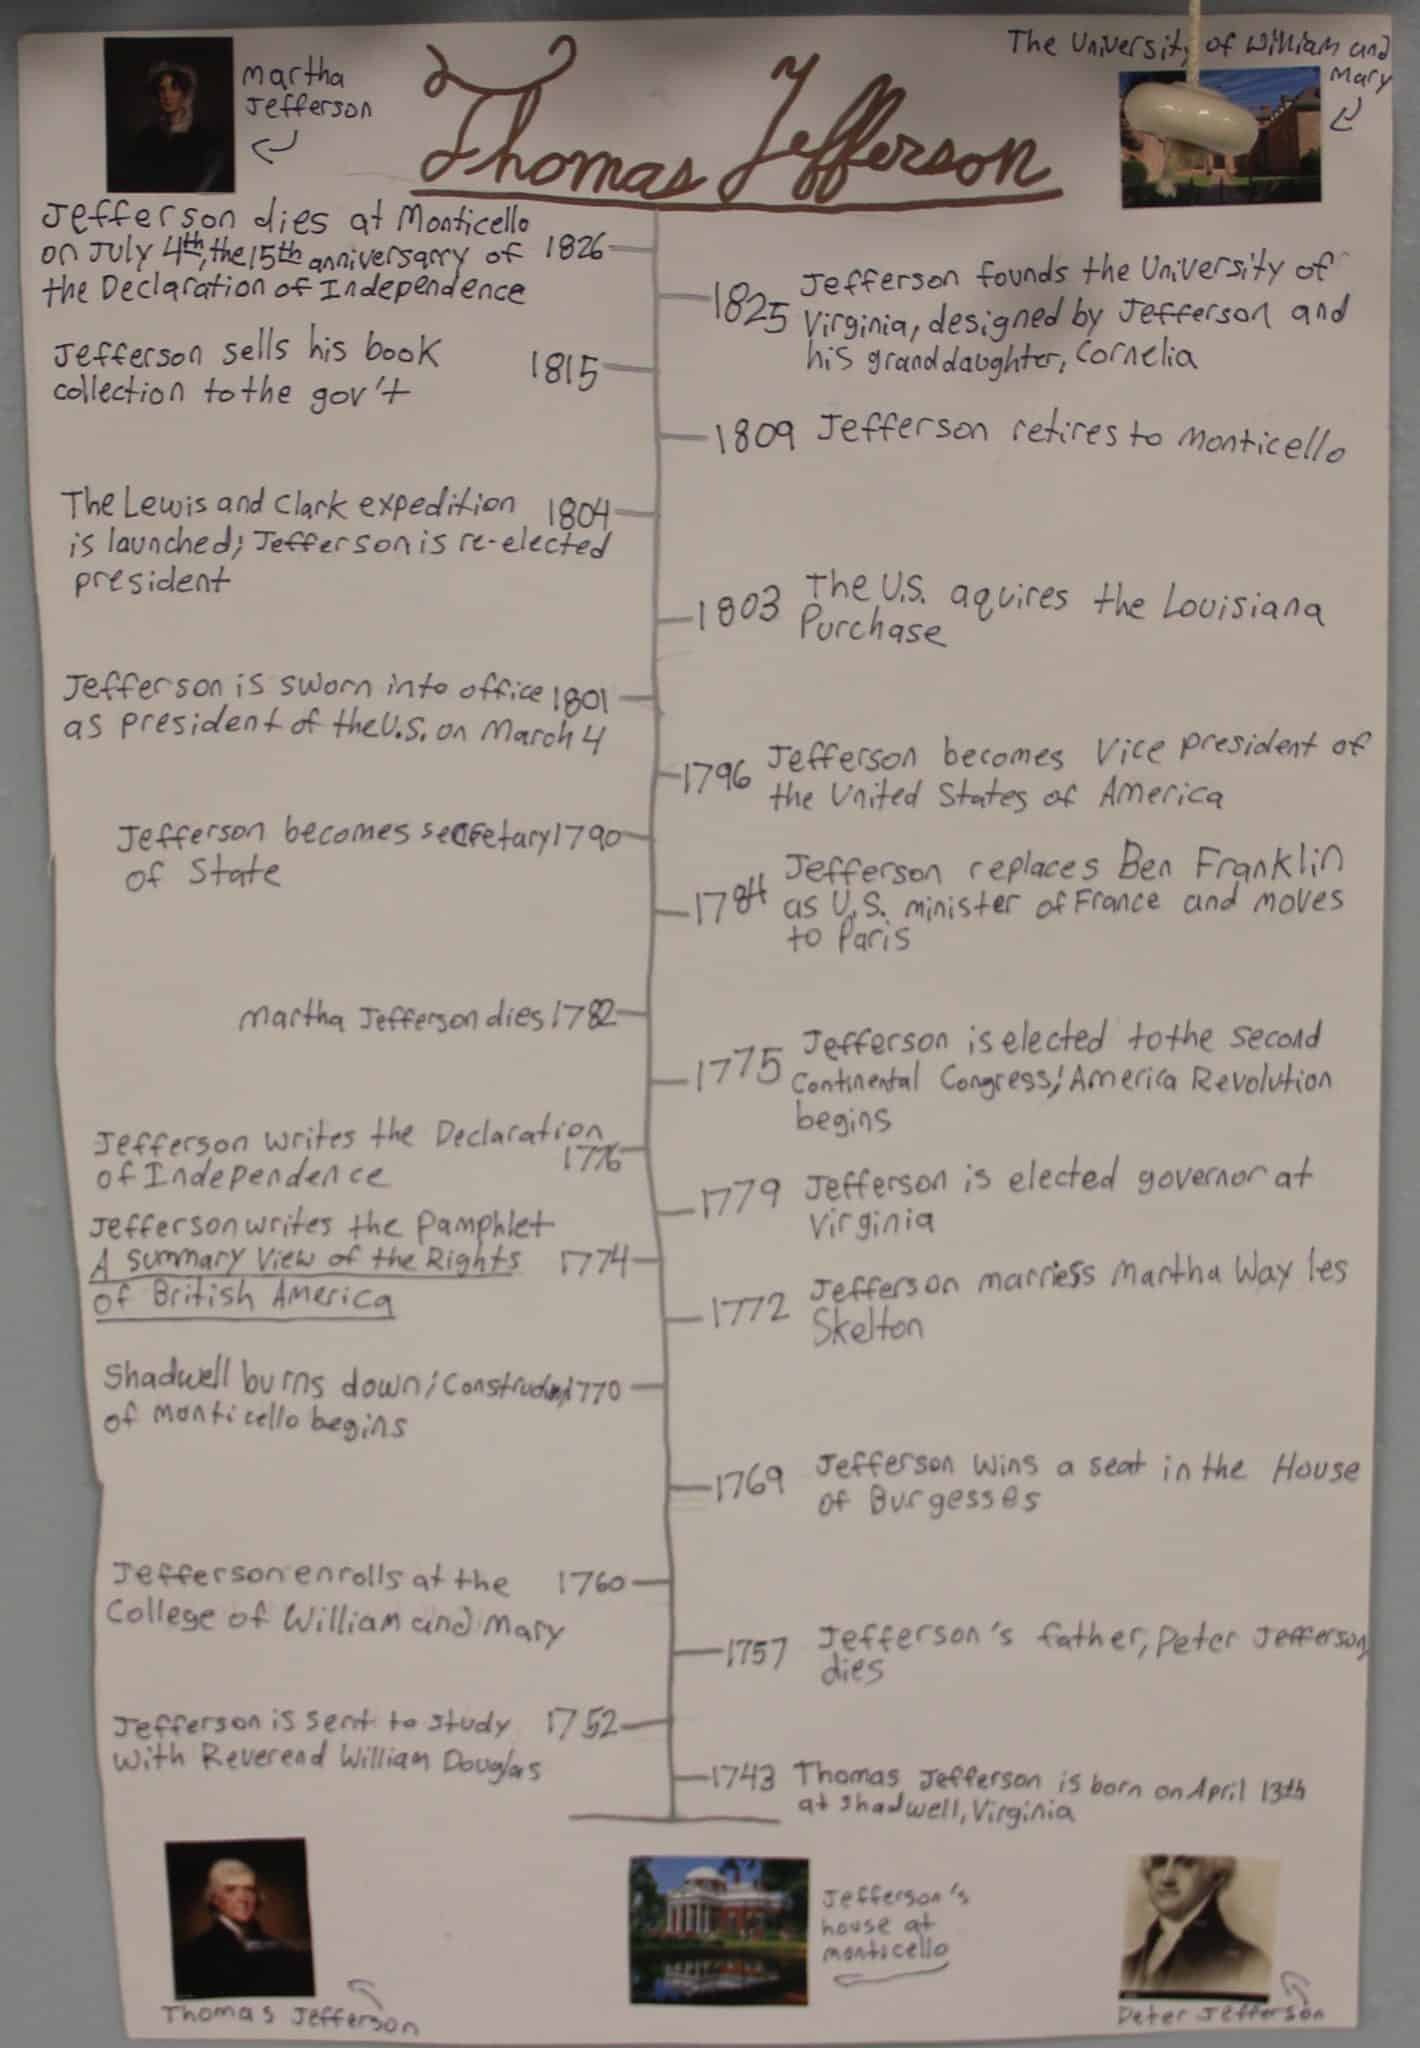 The University of William and
Mary
Martha
Jefferson
Thomas Jefferson
Jefferson dies at Monticello
on July 4th, the 15th anniversarry of
the Declaration of Independence
1826
1825
Jefferson founds the University of
Virginia, designed by Jefferson and
his granddaughter, Cornelia
Jefferson sells his book
collection to the gov't
1815
1809 Jefferson retires to Monticello
The Lewis and Clark expedition
is launched; Jefferson is re-elected
president
1804
1803
The U.S. aquires the Louisiana
Purchase
Jefferson is sworn into office 1801
as president of the U.S. on March 4
1796
Jefferson becomes Vice president of
the United States of America
Jefferson becomes secretary 1790
of State
1784
Jefferson replaces Ben Franklin
as U.S. minister of France and moves
to Paris
Martha Jefferson dies 1782
1775
Jefferson is elected to the second
Continental Congress; America Revolution
begins
Jefferson writes the Declaration
of Independence
1776
1779
Jefferson is elected governor at
Virginia
Jefferson writes the Pamphlet
A Summary View of the Rights
of British America
1774
1772
Jefferson marries Martha Way les
Skelton
Shadwell burns down; Construction 1770
of monticello begins
1769
Jefferson wins a seat in the House
of Burgesses
Jefferson enrolls at the 1760
College of William and Mary
1757
Jefferson's father, Peter Jefferson,
dies
Jefferson is sent to study 1752
with Reverend William Douglas
1743
Thomas Jefferson is born on April 13th
at Shadwell, Virginia
Thomas Jefferson
Jefferson's
house at
monticello
Peter Jefferson